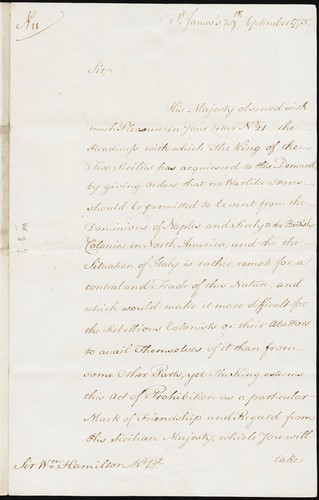 St. James's 29th. September 1775.
Sir
His Majesty observed with
much Pleasure in Your Letter No. 21 the
Readiness with which The King of the
Two Sicilies has acquiesced to this Demand
by giving Orders, that no Warlike Stores
should be permitted to be sent from the
Dominions of Naples and Sicily to His British
Colonies in North America, and tho' the
Situation of Italy is rather remote for a
contraband Trade of this Nature, and
which would make it more difficult for
the Rebellious Colonists or their Abettors
to avail Themselves of it than from
some Other Parts, yet The King esteems
this Act of Prohibition as a particular
Mark of Friendship and Regard from
His Sicilian Majesty, which You will
take
Sir Wm. Hamilton Kt. Bh.